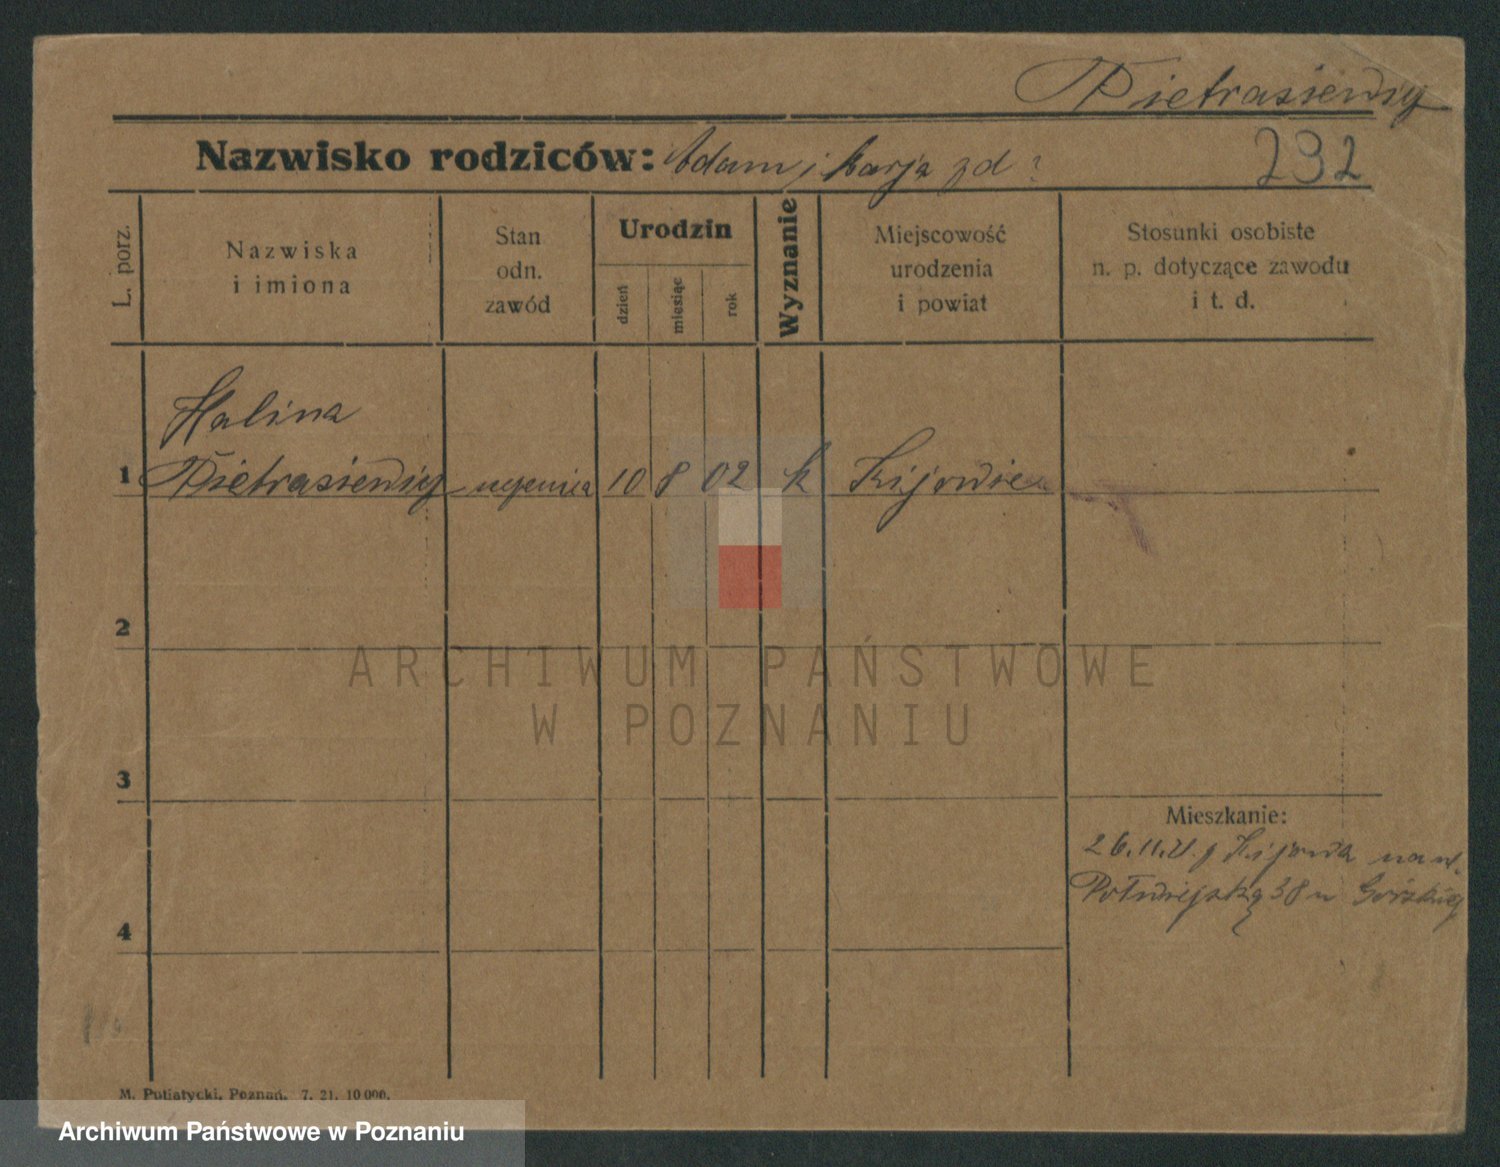 Pietrasiewicz
Nazwisko rodziców: Adam i Marja zd ?
232
L. porz.
Nazwiska
i imiona
Stan
odn.
zawód
Urodzin
dzień
miesiąc
rok
Wyznanie
Miejscowość
urodzenia
i powiat
Stosunki osobiste
n. p. dotyczące zawodu
i t. d.
Halina
1 Pietrasiewicz uczenica 10 8 02 k Kijowiec
2
3
4
Mieszkanie:
26.11.21. z Kijowa na ul.
Półwiejską 38 u
M. Putiatycki, Poznań. 7. 21. 10 000.
ARCHIWUM PAŃSTWOWE
W POZNANIU
Archiwum Państwowe w Poznaniu